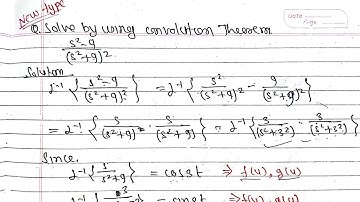 New type
Q. Solve by using convolution Theorem
s²-9 / (s²+9)²
Solution
L⁻¹{ s²-9 / (s²+9)² } = L⁻¹{ s² / (s²+9)² - 9 / (s²+9)² }
= L⁻¹{ s / (s²+9) · s / (s²+9) } = L⁻¹{ 3 / (s²+3²) · 3 / (s²+3²) }
Since,
L⁻¹{ s / s²+9 } = cos3t ⇒ f(u), g(u)
⇒ f(u), g(u)